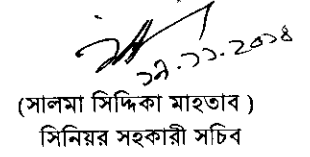 ১৯.১১.২০১৪
(সালমা সিদ্দিকা মাহতাব )
সিনিয়র সহকারী সচিব